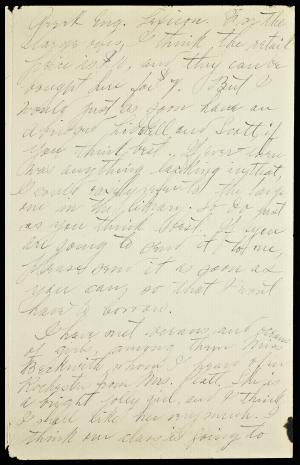 Greek Eng. Lexicon. For the
large one, I think, the retail
price is $10, and they can be
bought here for 7. But I
would just as soon have an
abridged Liddell and Scott if
you think best. If ever there
was anything lacking in that,
I could easily refer to the large
one in the library. So do just
as you think best. If you
are going to send it to me,
please send it as soon as
you can, so that I won't
have to borrow.
I have met oceans and oceans
of girls, among them Miss
Beckwith whom I heard of in
Rochester from Mrs. Platt. She is
a bright jolly girl, and I think
I shall like her very much. I
think our class is going to